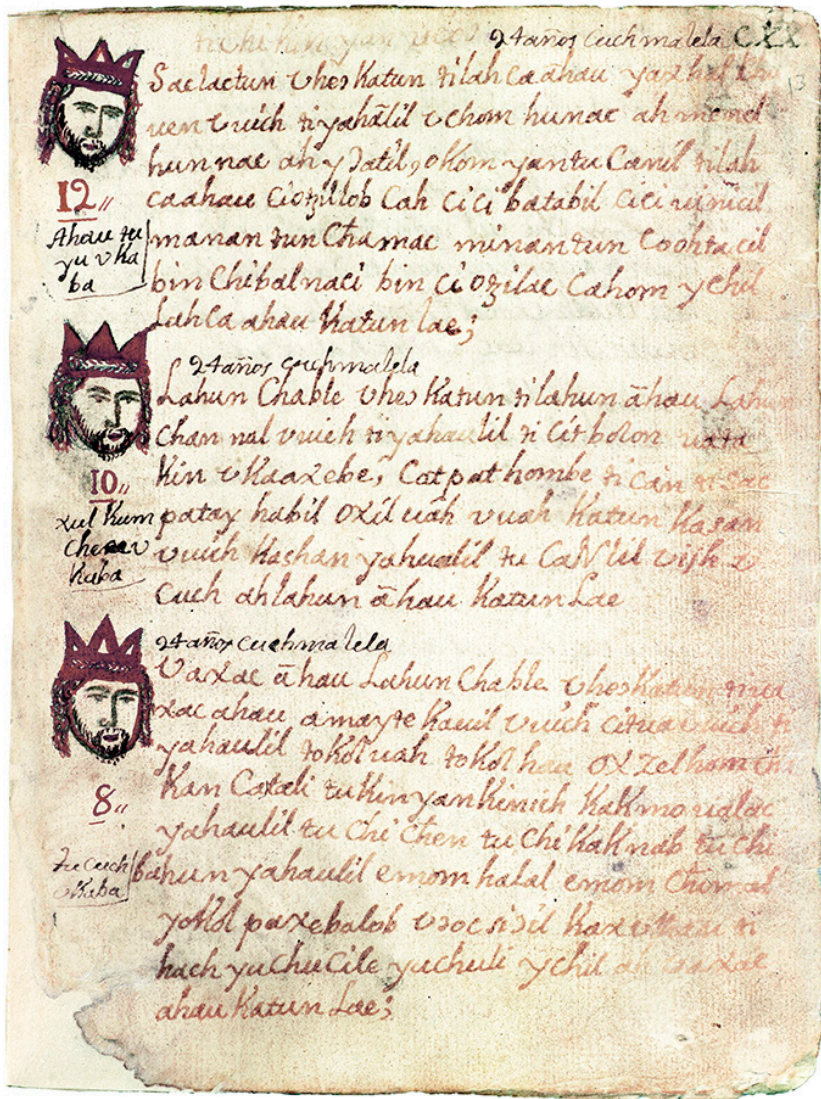 24 años cuchmalela CXX
13
Saclactun vheɔ Katun tilahca āhau yaxhal chu
uen v uich ti yahālil v chom hunac ah mend
hunnac ah yɔatil, okom yantu Canil tilah
12,,
caahau Ciotzillob Cah cici batabil cici uinicil
Ahau tu
yu v ka
ba
manan tun Chamac minantun Coohtacil
bin Chibalnaci bin ci otzilac Cahom ychil
Lahca ahau Katun lae;
24 años cuchmalela
Lahun Chable vheɔ Katun tilahun āhau Lahun
Chan nal v uich ti yahaulil ti Cit bolon uata
Kin v Kaaxebe, Catpat hombe ti can ti sac
10,,
xul Kum
Chen v
Kaba
patay habil Oxil uah v uah Katun Kasan
v uich Kashan yahualil tu CaNlil viih v
Cuch ahlahun āhau Katun Lae
24 años cuchmalela
Vaxac āhau Lahun Chable vheɔ Katun
xac ahau amayte Kauil v uich citua v uich ti
yahaulil tokol uah tokol hau OX Zelhom
Kan Catali tu Kin yan Kinich Kakmo ualac
8,,
yahaulil tu Chi Chen tu Chi Kaknab tu Chi
tu cuch
v Kaba
bahun yahaulil emom halal emom Chimal
yokol paxebalob vɔoc siɔil Kax v
hach yuchucile yuchuli ychil ah uaxac
ahau Katun Lae;